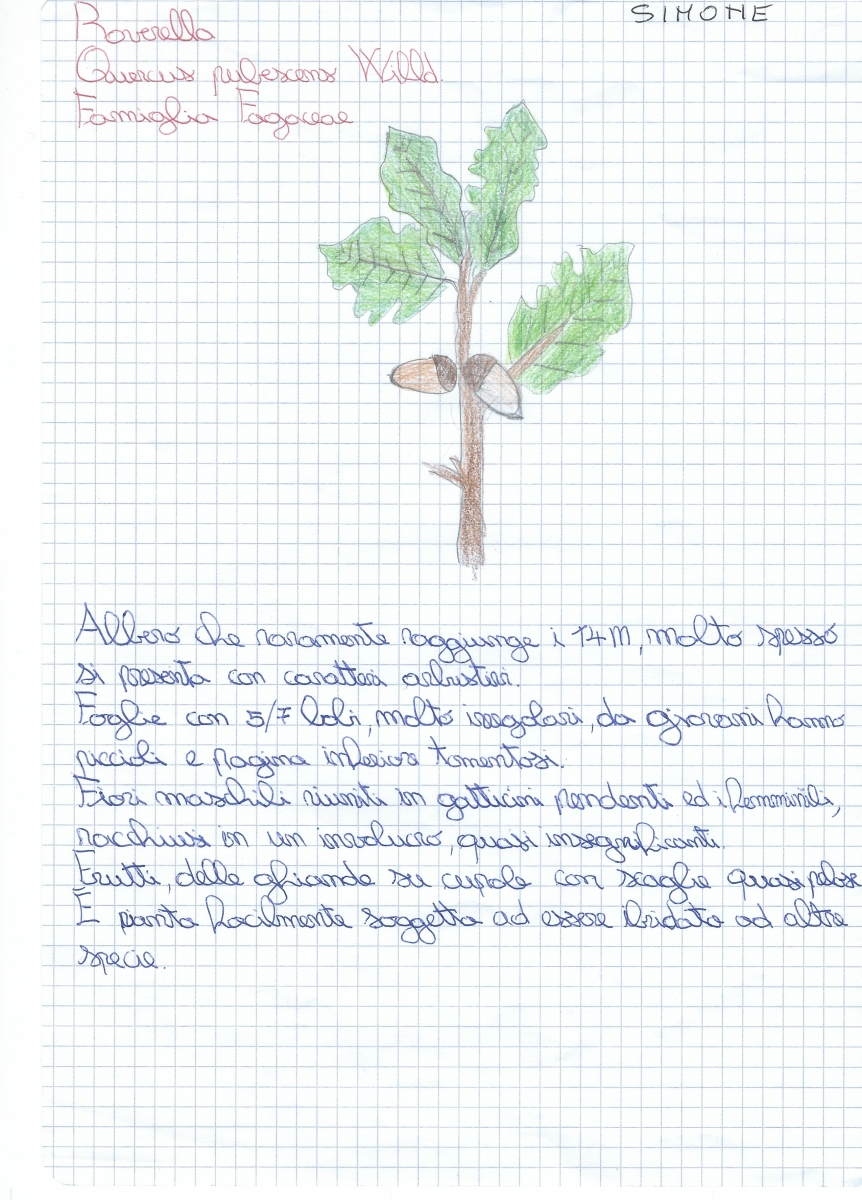 SIMONE
Roverella
Quercus pubescens Willd.
Famiglia Fagaceae
Albero che raramente raggiunge i 14 M, molto spesso
si presenta con caratteri arbustivi.
Foglie con 5/7 lobi, molto irregolari, da giovani hanno
piccioli e pagina inferiori tomentosi.
Fiori maschili riuniti in gatticini pendenti ed i femminili,
racchiusi in un involucro, quasi insegnificanti.
Frutti, delle ghiande su cupole con scaglie quasi pelose
È pianta facilmente soggetta ad essere ibridato ad altre
specie.